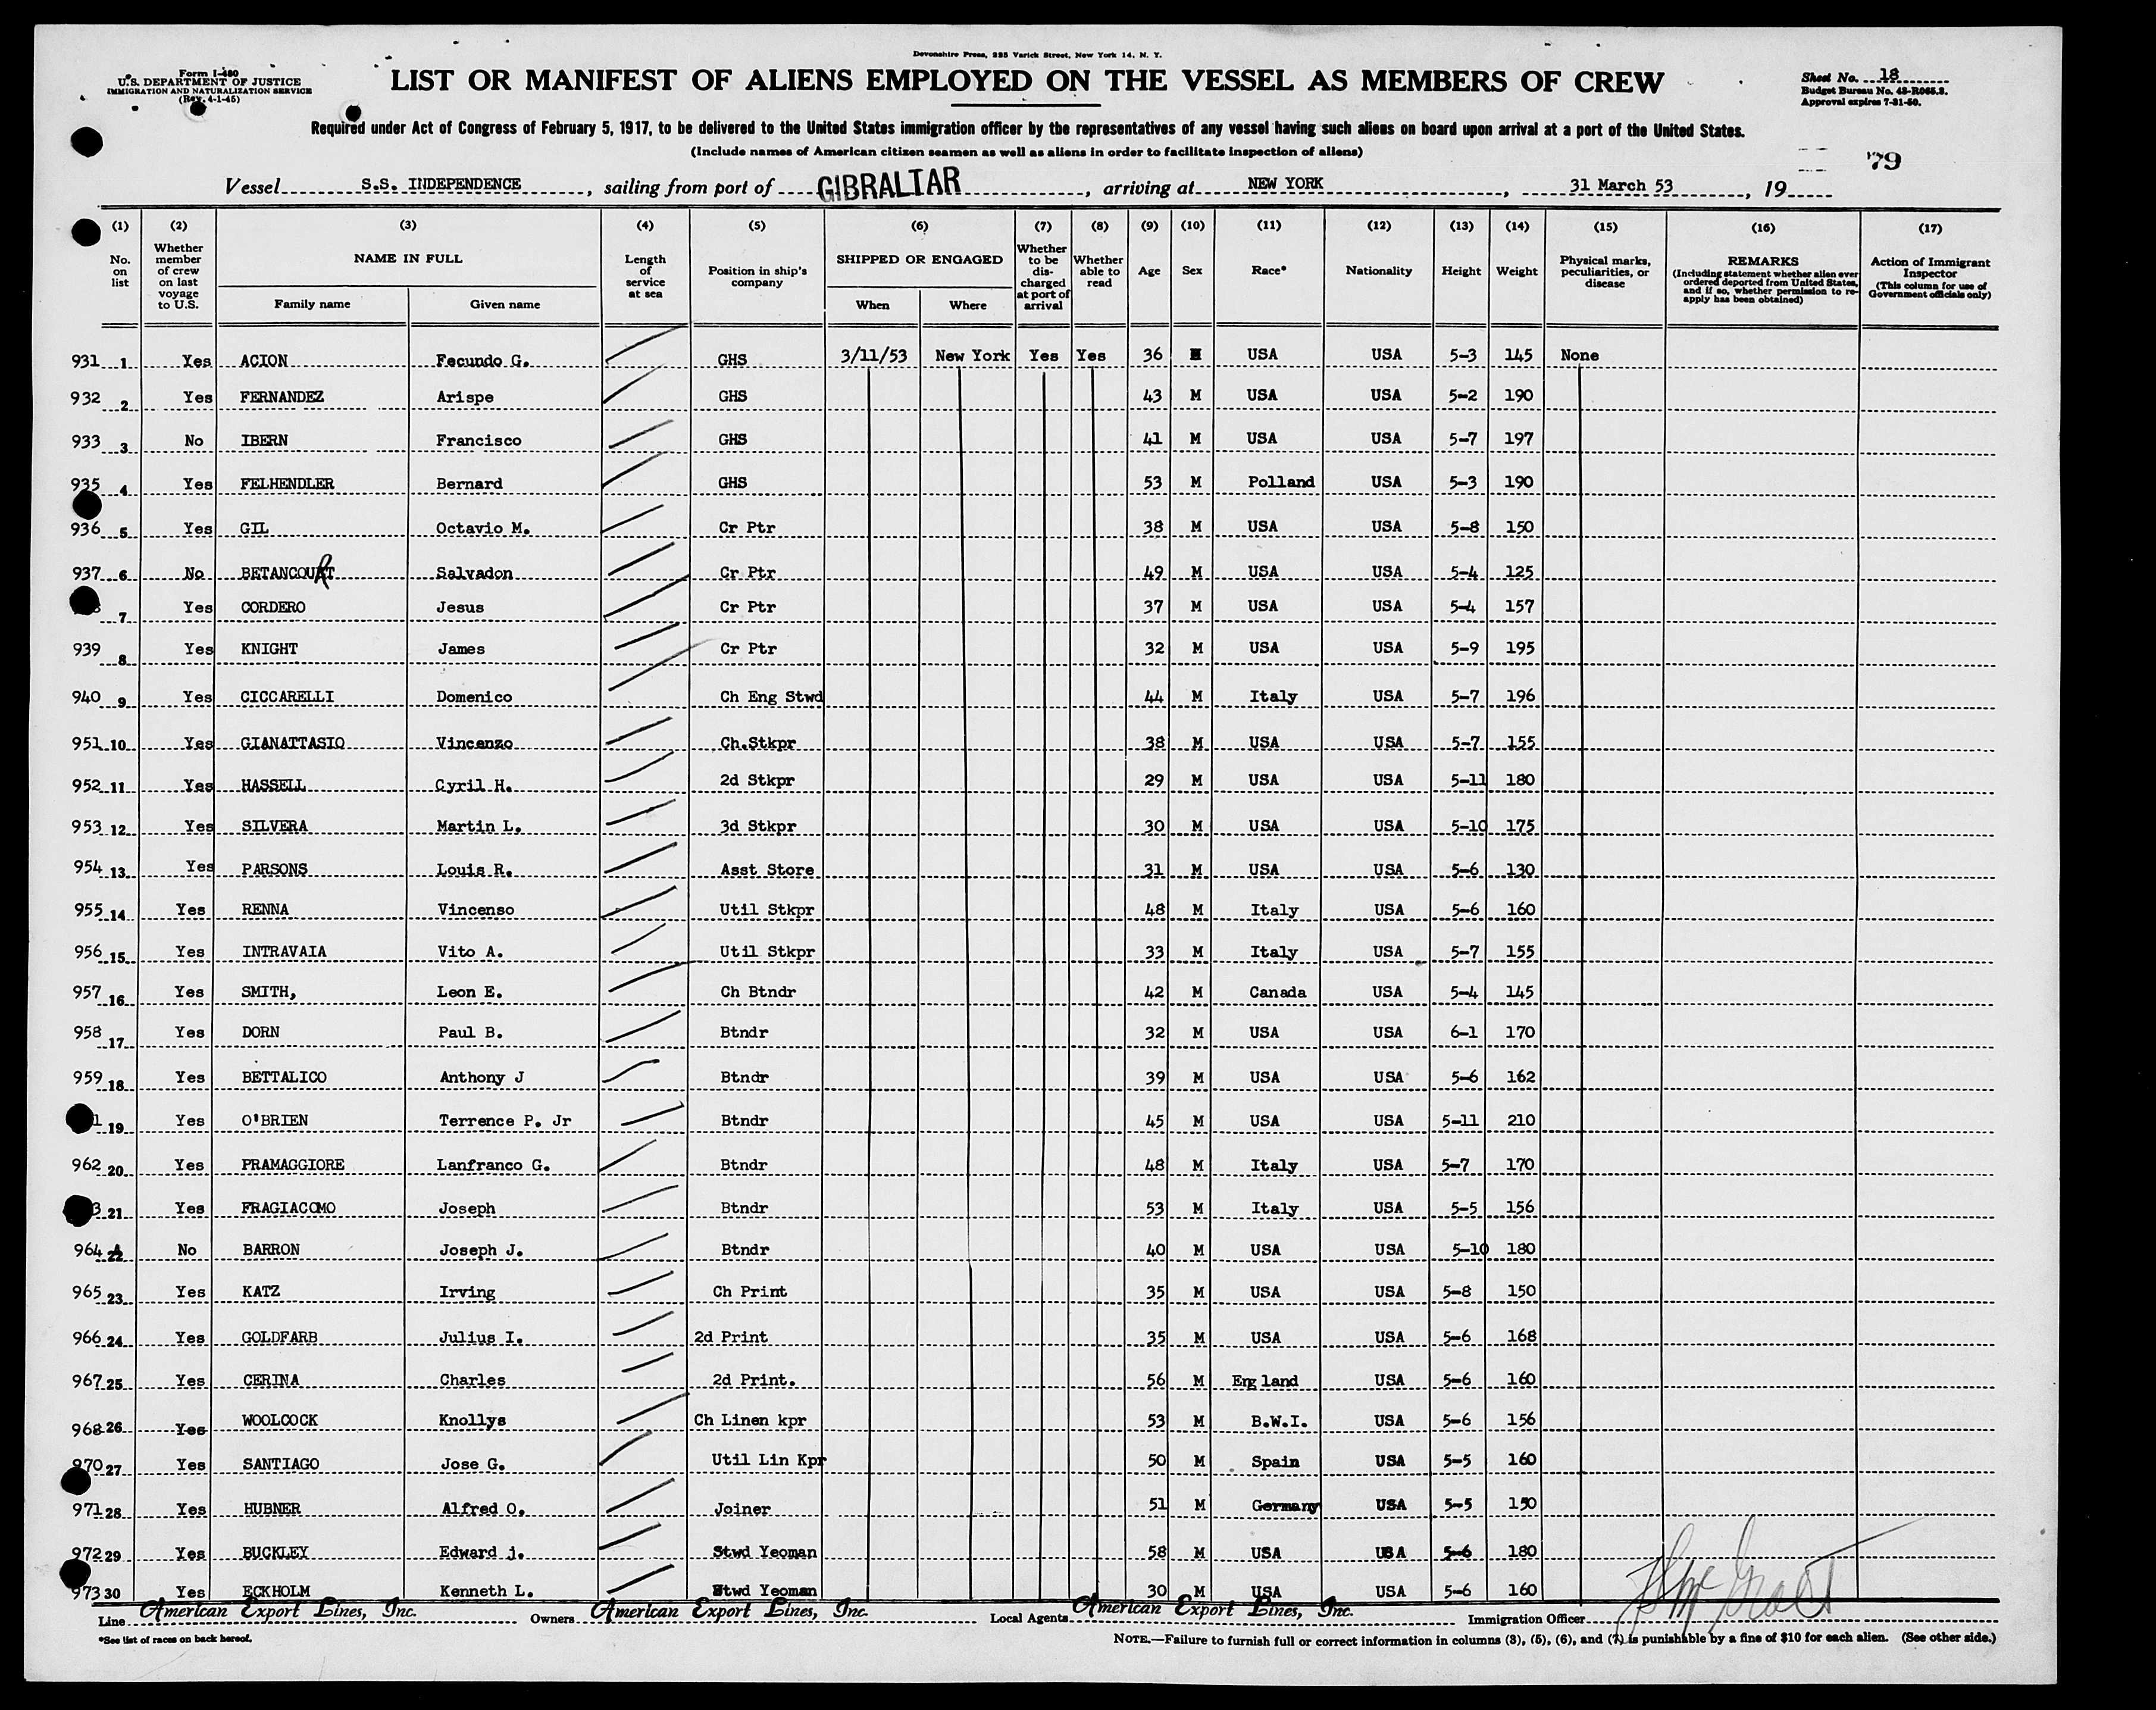 Devonshire Press, 225 Varick Street, New York 14, N. Y.
Form I-480
U.S. DEPARTMENT OF JUSTICE
IMMIGRATION AND NATURALIZATION SERVICE
(Rev. 4-1-45)
LIST OR MANIFEST OF ALIENS EMPLOYED ON THE VESSEL AS MEMBERS OF CREW
Sheet No. 18
Budget Bureau No. 43-R065.3.
Approval expires 7-31-50.
Required under Act of Congress of February 5, 1917, to be delivered to the United States immigration officer by the representatives of any vessel having such aliens on board upon arrival at a port of the United States.
(Include names of American citizen seamen as well as aliens in order to facilitate inspection of aliens)
79
Vessel S.S. INDEPENDENCE, sailing from port of GIBRALTAR, arriving at NEW YORK, 31 March 53, 19
(1) (2) (3) (4) (5) (6) (7) (8) (9) (10) (11) (12) (13) (14) (15) (16) (17)
No. on list
Whether member of crew on last voyage to U.S.
NAME IN FULL
Family name Given name
Length of service at sea
Position in ship's company
SHIPPED OR ENGAGED
When Where
Whether to be discharged at port of arrival
Whether able to read
Age
Sex
Race*
Nationality
Height
Weight
Physical marks, peculiarities, or disease
REMARKS
(Including statement whether alien ever ordered deported from United States, and if so, whether permission to reapply has been obtained)
Action of Immigrant Inspector
(This column for use of Government officials only)
931 1 Yes ACION Fecundo G. GHS 3/11/53 New York Yes Yes 36 USA USA 5-3 145 None
932 2 Yes FERNANDEZ Arispe GHS 43 M USA USA 5-2 190
933 3 No IBERN Francisco GHS 41 M USA USA 5-7 197
935 4 Yes FELHENDLER Bernard GHS 53 M Polland USA 5-3 190
936 5 Yes GIL Octavio M. Cr Ptr 38 M USA USA 5-8 150
937 6 No BETANCOURT Salvadon Cr Ptr 49 M USA USA 5-4 125
7 Yes CORDERO Jesus Cr Ptr 37 M USA USA 5-4 157
939 8 Yes KNIGHT James Cr Ptr 32 M USA USA 5-9 195
940 9 Yes CICCARELLI Domenico Ch Eng Stwd 44 M Italy USA 5-7 196
951 10 Yes GIANATTASIO Vincenzo Ch.Stkpr 38 M USA USA 5-7 155
952 11 Yes HASSELL Cyril H. 2d Stkpr 29 M USA USA 5-11 180
953 12 Yes SILVERA Martin L. 3d Stkpr 30 M USA USA 5-10 175
954 13 Yes PARSONS Louis R. Asst Store 31 M USA USA 5-6 130
955 14 Yes RENNA Vincenso Util Stkpr 48 M Italy USA 5-6 160
956 15 Yes INTRAVAIA Vito A. Util Stkpr 33 M Italy USA 5-7 155
957 16 Yes SMITH, Leon E. Ch Btndr 42 M Canada USA 5-4 145
958 17 Yes DORN Paul B. Btndr 32 M USA USA 6-1 170
959 18 Yes BETTALICO Anthony J Btndr 39 M USA USA 5-6 162
19 Yes O'BRIEN Terrence P. Jr Btndr 45 M USA USA 5-11 210
962 20 Yes PRAMAGGIORE Lanfranco G. Btndr 48 M Italy USA 5-7 170
21 Yes FRAGIACOMO Joseph Btndr 53 M Italy USA 5-5 156
964 22 No BARRON Joseph J. Btndr 40 M USA USA 5-10 180
965 23 Yes KATZ Irving Ch Print 35 M USA USA 5-8 150
966 24 Yes GOLDFARB Julius I. 2d Print 35 M USA USA 5-6 168
967 25 Yes CERINA Charles 2d Print. 56 M England USA 5-6 160
968 26 Yes WOOLCOCK Knollys Ch Linen kpr 53 M B.W.I. USA 5-6 156
970 27 Yes SANTIAGO Jose G. Util Lin Kpr 50 M Spain USA 5-5 160
971 28 Yes HUBNER Alfred O. Joiner 51 M Germany USA 5-5 150
972 29 Yes BUCKLEY Edward j. Stwd Yeoman 58 M USA USA 5-6 180
973 30 Yes ECKHOLM Kenneth L. Stwd Yeoman 30 M USA USA 5-6 160
Line American Export Lines, Inc. Owners American Export Lines, Inc. Local Agents American Export Lines, Inc. Immigration Officer
*See list of races on back hereof.
NOTE.—Failure to furnish full or correct information in columns (3), (5), (6), and (7) is punishable by a fine of $10 for each alien. (See other side.)